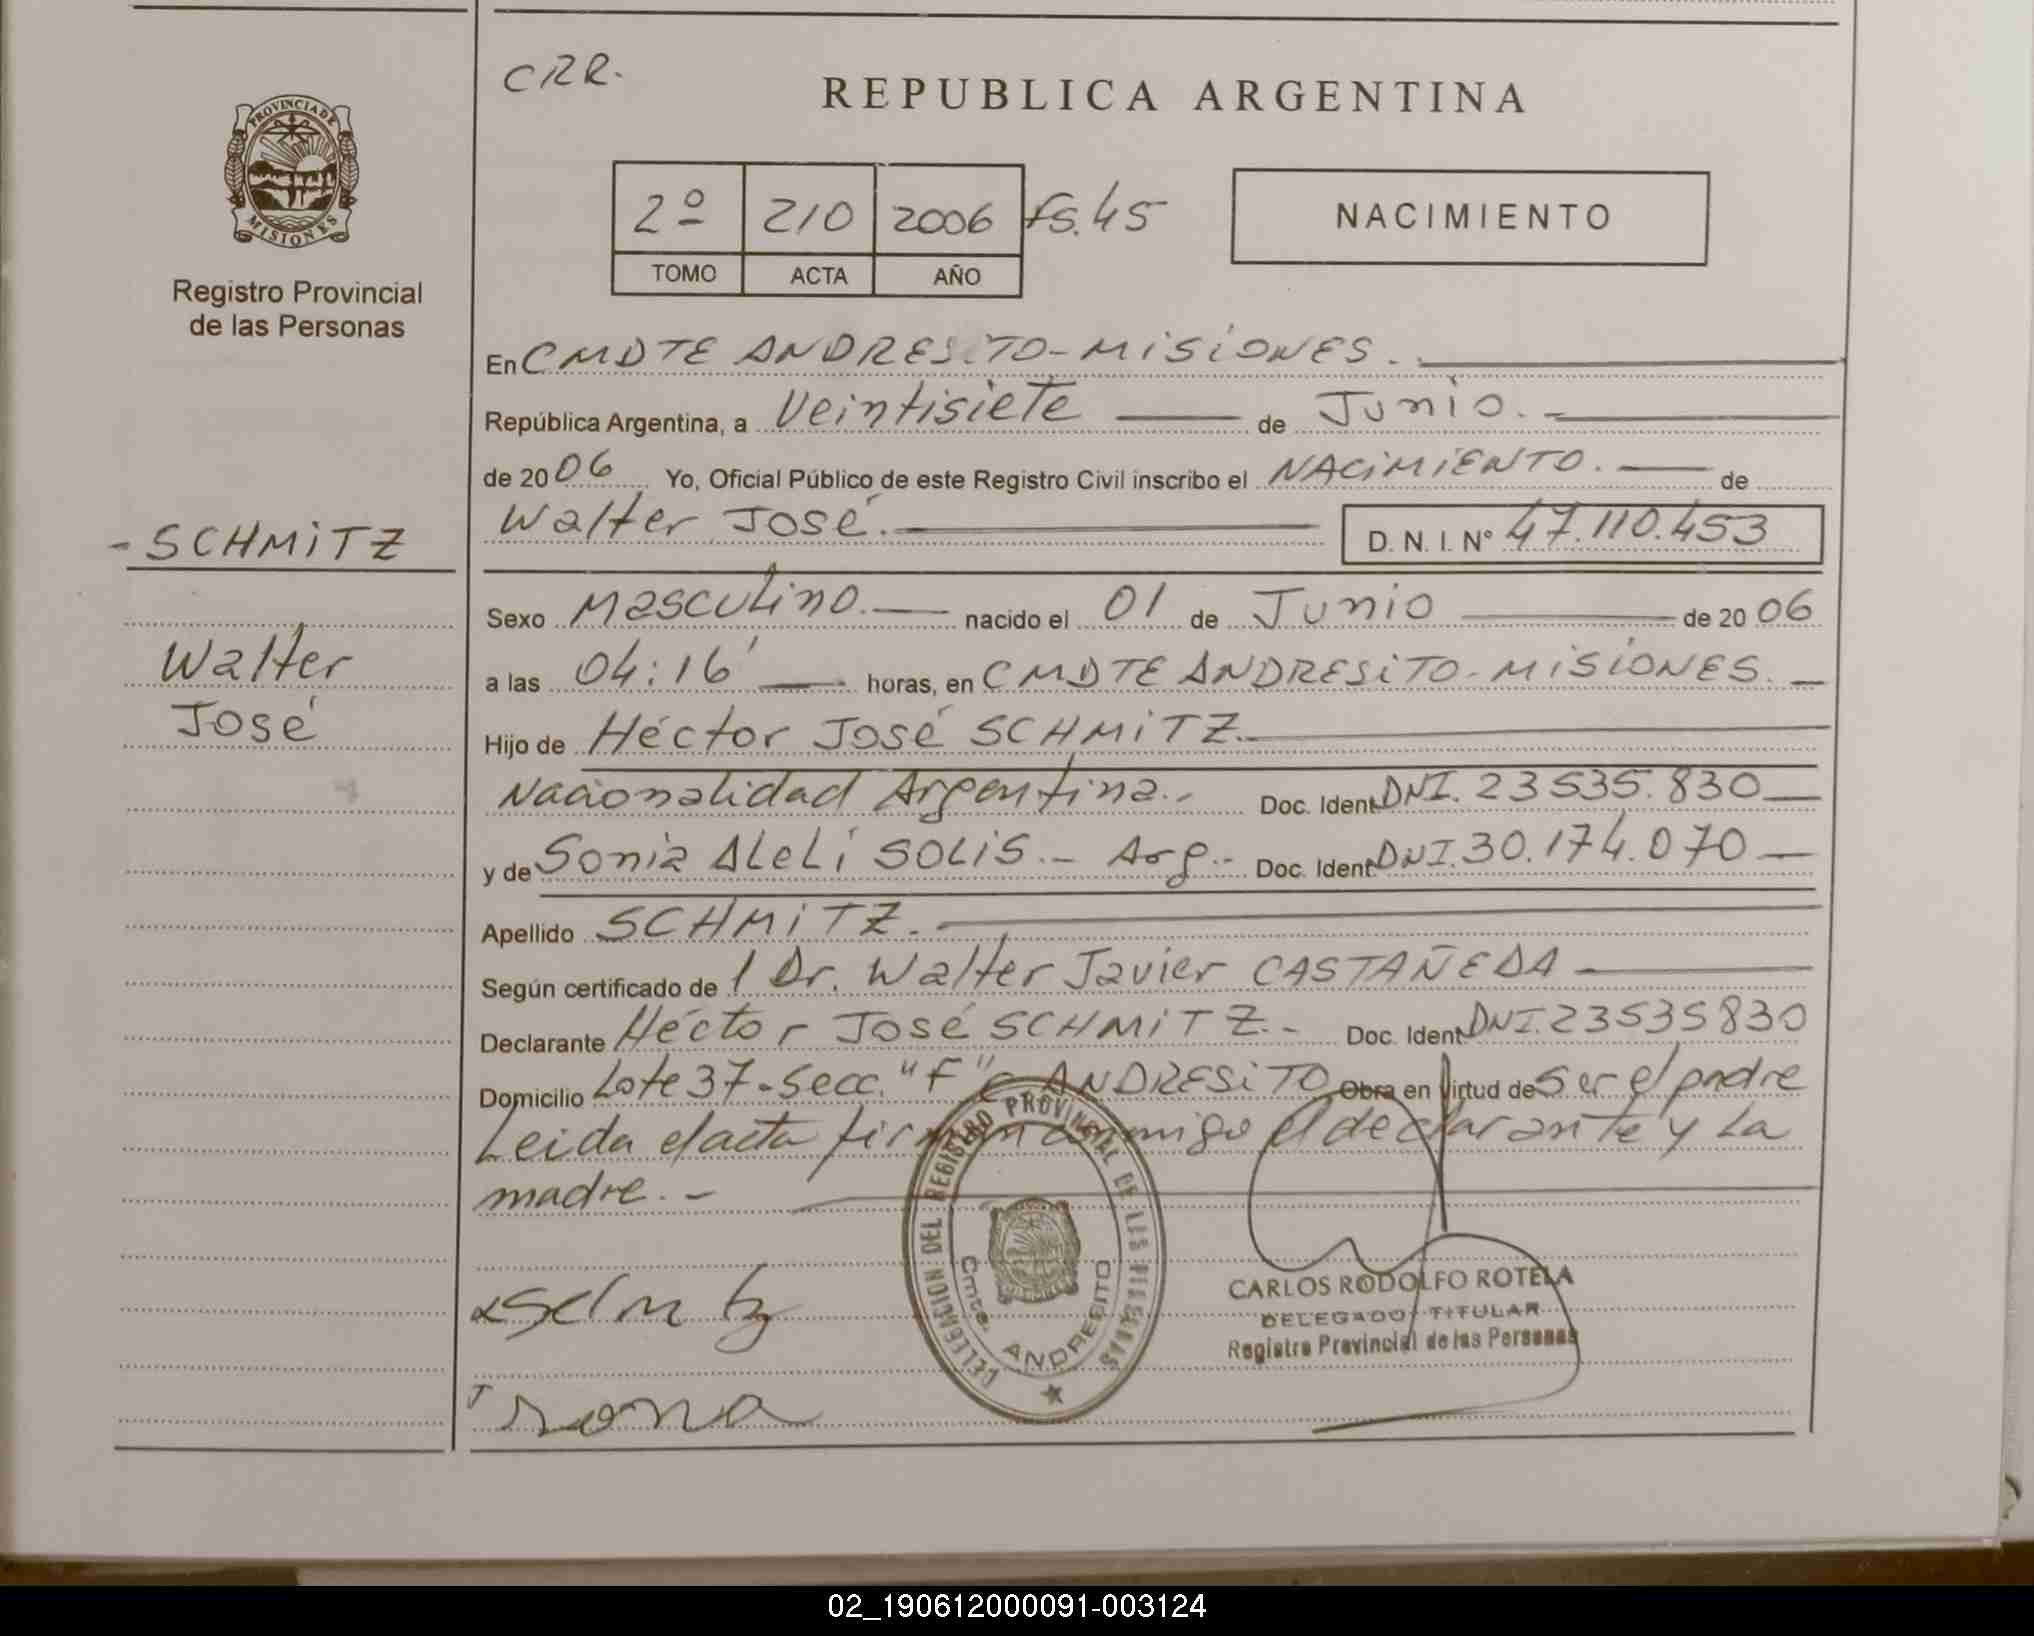 CRR.
REPUBLICA ARGENTINA
PROVINCIA DE
MISIONES
Registro Provincial
de las Personas
2º 210 2006 fs.45
TOMO ACTA AÑO
NACIMIENTO
En CMDTE ANDRESITO-MISIONES.
República Argentina, a Veintisiete de Junio.-
de 2006 Yo, Oficial Público de este Registro Civil inscribo el NACIMIENTO. de
Walter José. D. N. I. Nº 47.110.453
-SCHMITZ
Walter
José
Sexo Masculino. nacido el 01 de Junio de 2006
a las 04:16' horas, en CMDTE ANDRESITO-MISIONES.
Hijo de Héctor José SCHMITZ.
Nacionalidad Argentina.- Doc. Ident DNI. 23535.830
y de Sonia ALeLí SOLIS.- Arg.- Doc. Ident DNI.30.174.070
Apellido SCHMITZ.
Según certificado de 1 Dr. Walter Javier CASTAÑEDA
Declarante Héctor José SCHMITZ.- Doc. Ident DNI.23535830
Domicilio Lote 37-Secc. "F" C. ANDRESITO Obra en Virtud de Ser el padre
Leida el acta firman conmigo el declarante y La
madre.-
DELEGACION DEL REGISTRO PROVINCIAL DE LAS PERSONAS
Cmte. ANDRESITO
CARLOS RODOLFO ROTELA
DELEGADO TITULAR
Registro Provincial de las Personas
02_190612000091-003124